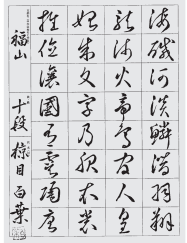 海鹹河淡鱗潛羽翔
龍師火帝鳥官人皇
始制文字乃服衣裳
推位讓國有虞陶唐
福山 十段 百葉